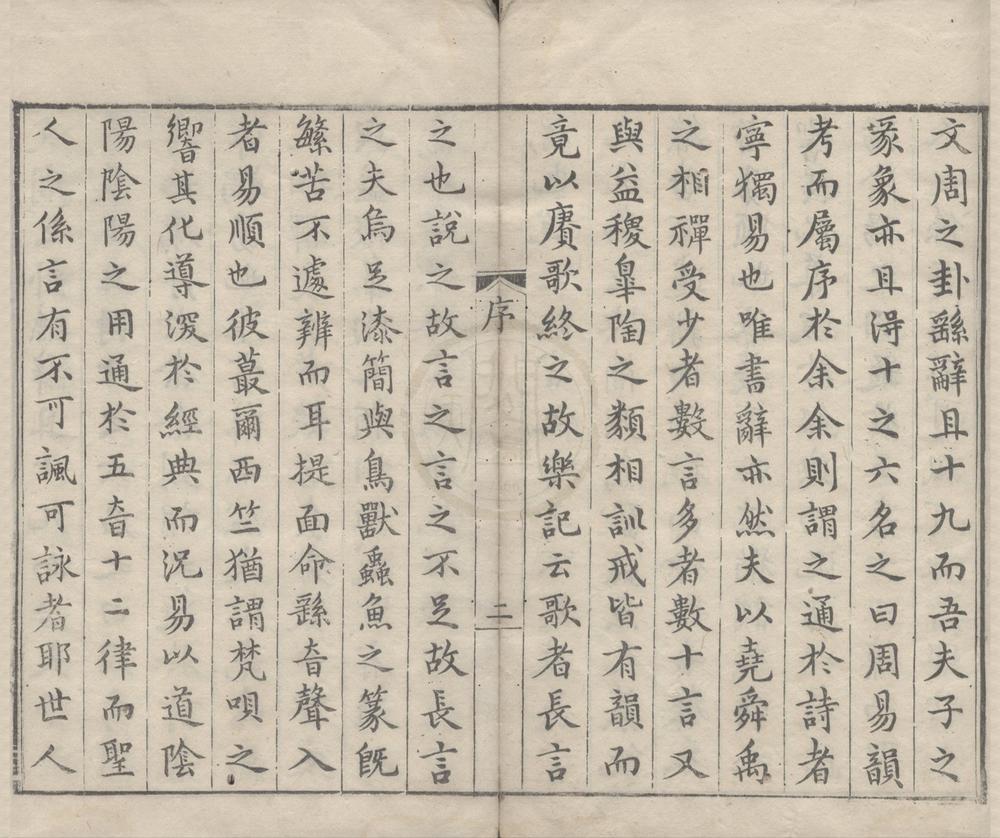 文周之卦繇辭且十九而吾夫子之
彖象亦且淂十之六名之曰周易韻
考而屬序於余余則謂之通於詩者
寧獨易也唯書辭亦然夫以堯舜禹
之相禪受少者數言多者數十言又
與益稷皐陶之類相訓戒皆有韻而
竟以賡歌終之故樂記云歌者長言
序
二
之也說之故言之言之不足故長言
之夫烏足漆簡與鳥獸蟲魚之篆旣
繁苦不遽辨而耳提面命繇音聲入
者易順也彼蕞爾西竺猶謂梵唄之
響其化導深於經典而況易以道陰
陽陰陽之用通於五音十二律而聖
人之係言有不可諷可詠者耶世人